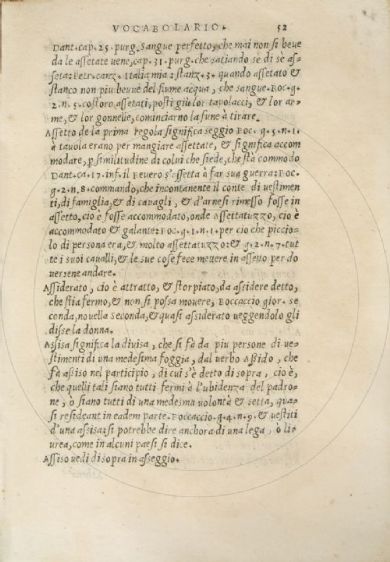 VOCABOLARIO. 52
Dant. cap. 25. purg. Sangue perfetto, che mai non si beue
da le assetate uene, cap. 31. purg. che satiando se di sè as-
seta: Petr. canz. italia mia: stanz. 3. quando assetato &
stanco non piu beuue del fiume acqua, che sangue. Boc. g.
2. n. 5. costoro assetati, posti giu lor tauolacci, & lor ar-
me, & lor gonnelle, cominciarno la fune à tirare.
Assetto de la prima regola significa seggio Boc. g. 5. n. 1.
è tauola erano per mangiare assettate, & significa accom
modare, p similitudine di colui che siede, che stà commodo
Dant. ca. 17. inf. il Beuero s'assetta à far sua guerra: Boc.
g. 2. n. 8. commando, che incontanente il conte di uestimen
ti, di famiglia, & di cauagli, & d'arnesi rimesso fosse in
assetto, ciò è fosse accommodato, onde Assettatuzzo, ciò è
accommodato & galante: Boc. g. 1. n. 1. per ciò che piccio-
lo di persona era, & molto assettatuzzo: & g. 2. n. 7. tut
te i suoi caualli, & le sue cose fece mettere in assetto per do
uersene andare.
Assiderato, cio è attratto, & storpiato, da assidere detto,
che stia fermo, & non si possa mouere, Boccaccio gior. se
conda, nouella seconda, & quasi assiderato ueggendolo gli
disse la donna.
Assisa significa la diuisa, che si fà da piu persone di ue-
stimenti di una medesima foggia, dal verbo Assido, che
fà assiso nel participio, di cui s'è detto di sopra, ciò è,
che quelli tali siano tutti fermi è l'ubidenza del padro-
ne, ò siano tutti di una medesma uolontà & setta, qua-
si resideant in eadem parte. Boccaccio. g. 4. n. 9. & uestiti
d'una assisa: si potrebbe dire anchora di una lega, ò li-
urea, come in alcuni paesi si dice.
Assiso uedi di sopra in asseggio.